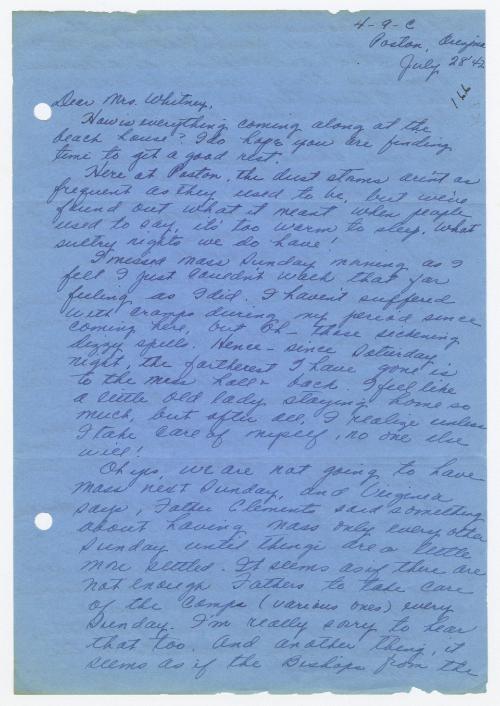 4-9-C
Poston, Arizona
July 28 '42
166
Dear Mrs. Whitney,
How is everything coming along at the
beach house? I do hope you are finding
time to get a good rest.
Here at Poston, the dust storms aren't as
frequent as they used to be, but we've
found out what it meant when people
used to say, it's too warm to sleep. What
sultry nights we do have!
I missed mass Sunday morning as I
fell I just couldn't walk that far
feeling as I did. I haven't suffered
with cramps during my period since
coming here, but Oh - those sickening
dizzy spells. Hence - since Saturday
night, the fartherest I have gone is
to the mess hall & back. I feel like
a little old lady staying home so
much, but after all, I realize unless
I take care of myself, no one else
will!
Oh yes, we are not going to have
mass next Sunday, and Virginia
says, Father Clements said something
about having mass only every other
Sunday until things are a little
more settled. It seems as if there are
not enough Fathers to take care
of the camps (various ones) every
Sunday. I'm really sorry to hear
that too. And another thing, it
seems as if the Bishops from the